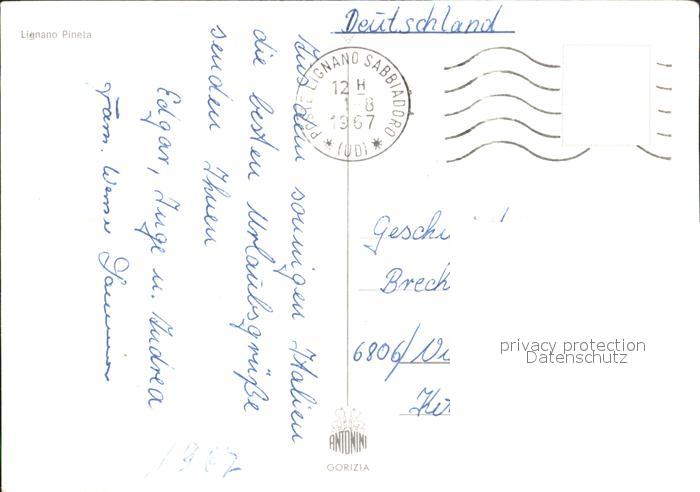 Lignano Pineta
Deutschland
POSTE LIGNANO SABBIADORO
12 H
1-8
1967
(UD)
Aus dem sonnigen Italien
die besten Urlaubsgrüße
senden Ihnen
Edgar, Inge u. Andrea
Fam. Werner
1967
Geschw
Breck
6806/Vi
privacy protection
Datenschutz
ANTONINI
GORIZIA